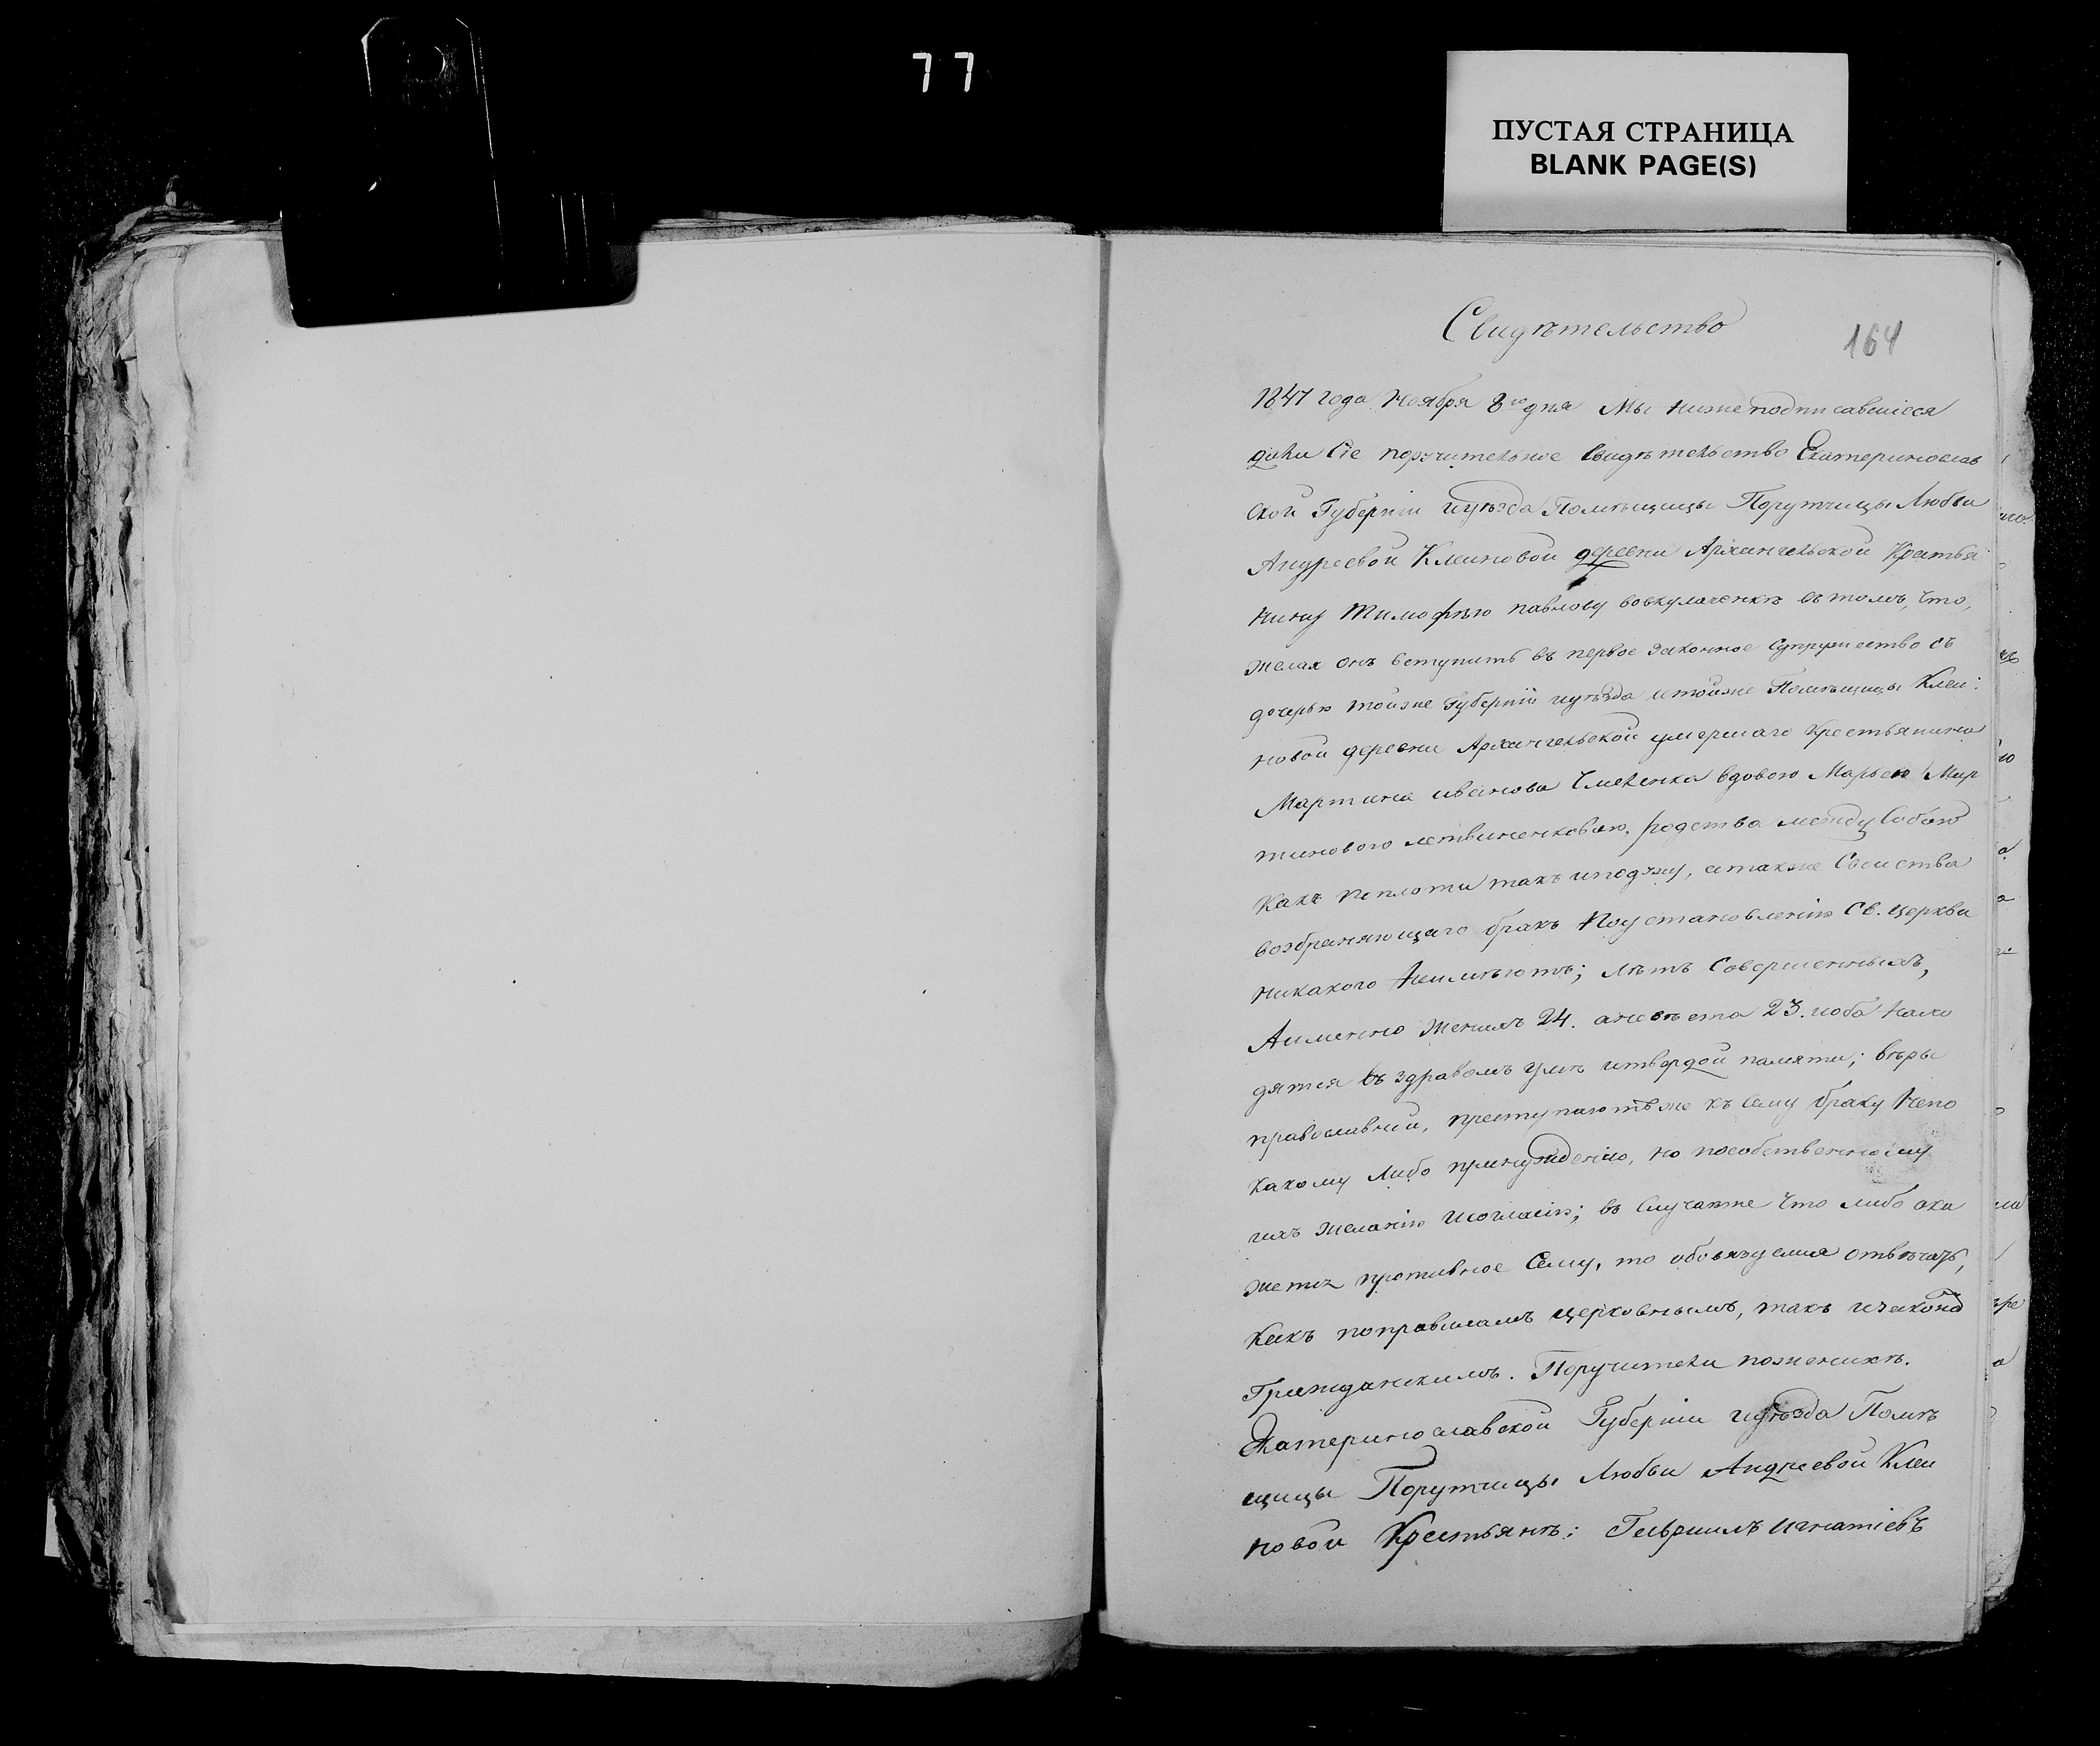 77
ПУСТАЯ СТРАНИЦА
BLANK PAGE(S)
Свидѣтельство
164
1847 года Ноября 8го дня Мы нижеподписавшіеся
дали Сіе поручительное Свидѣтельство Екатеринослав
ской Губерніи иуѣзда Помѣщицы Порутчицы Любви
Андреевой Клеиновой деревни Архангельской Крестья
нину Тимофѣю павлову вовкулаченкѣ въ томъ, что,
желая онъ вступить въ первое законное Супружество съ
дочерью тойже Губерніи иуѣзда итойже Помѣщицы Клеи:
новой деревни Архангельской умершаго Крестьянина
Мартина иванова вдовою Марьею Мар
тиновою летвиненковою, родства между Собою
Какъ поплоти такъ иподуху, атакже Свойства
возбраняющаго бракъ Поустановленію Св. церкви
никакого Неимѣютъ; лѣтъ Совершенныхъ,
Аименно женихъ 24. аневѣста 23. иоба нахо
дятся въ здравомъ умѣ итвердой памяти; вѣры
православной, преступаютъже къ Сему браку Непо
какому либо принужденію, но пособственному
ихъ желанію исогласію; въ Случаѣже что либо ока
жется противное Сему, то обовязуемся отвѣчать,
Какъ поправиламъ церковнымъ, такъ изаконо
Гражданскимъ. Поручители поженихѣ.
Екатеринославской Губерніи иуѣзда Помѣ
щицы Порутчицы Любви Андреевой Клеи
новой Крестьянѣ: Гавріилъ игнатіевъ